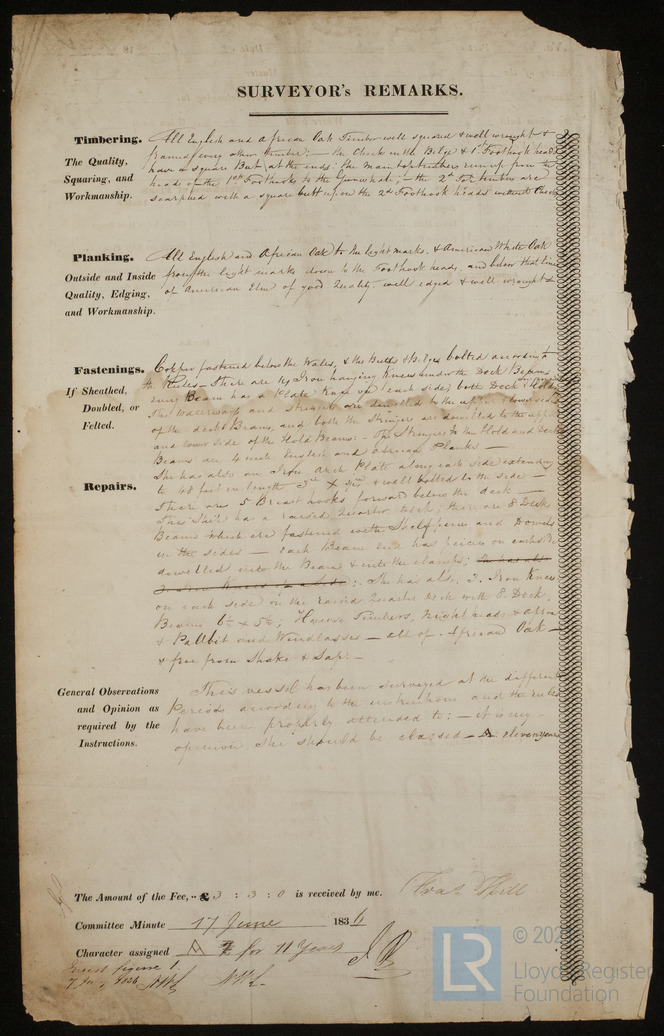 SURVEYOR's REMARKS.
Timbering.
The Quality,
Squaring, and
Workmanship.
All English and African Oak Timber well squared & well wrought &
framed every other timber; — the Chocks in the Bilge & 1st Foothook heads
have a square Butt at the ends; the main toptimbers run up from the
heads of the 1st Foothooks to the Gunwhale; — the 2d Toptimbers are
scarphed with a square butt upon the 2d Foothook heads without Chocks
Planking.
Outside and Inside
Quality, Edging,
and Workmanship.
All English and African Oak to the light marks, & American White Oak
from the light marks down to the Foothook heads, and below that line
of American Elm of good Quality well edged & well wrought
Fastenings.
If Sheathed,
Doubled, or
Felted.
Copper fastened below the Wales, & the Butts & Bilges bolted according to
the Rules — There are 19 Iron hanging Knees under the Deck Beams
every Beam has a Plate Knee on each side, both Deck & Hold
The Waterways and are dowelled to the upper
of the deck Beams, and both the Stringers are dowelled to the upper
and lower side of the Hold Beams: — The Stringers to the Hold and Deck
Beams are 4 inch English and African Plank —
Repairs.
She has also an Iron Arch Plate along each side extending
to 48 feet in length & well bolted to the side —
There are 5 Breast hooks forward below the deck —
This Ship has a raised Quarter Deck; there are 8 Deck
Beams which are fastened with Shelf piece and Dowels
in the sides — each Beam end has
dowelled into the Beam & into the clamps;
She has also 2 Iron Knees
on each side in the raised Quarter Deck with 8 Deck
Beams 6½ x 5½; Hawse Timbers, Knight heads & apron
& Pallbit and Windlasses — all of African Oak —
& free from Shake & Sap —
General Observations
and Opinion as
required by the
Instructions.
This vessel has been surveyed at the different
Periods according to the instructions and the rules
have been properly attended to: — it is my
opinion She should be classed — A eleven years
The Amount of the Fee, - £ 3 : 3 : 0 is received by me.
Thos Hill
Committee Minute 17 June 1836
Character assigned A 1 for 11 Years
© 202
LR
Lloyd's Register
Foundation